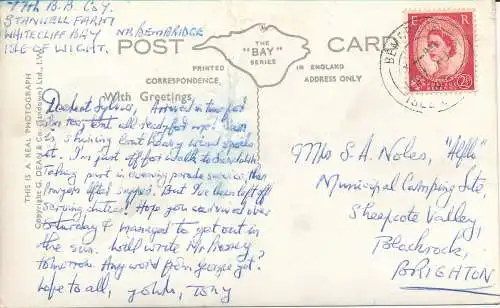 77th B.B. Coy.
STANWELL FARM
WHITECLIFF BAY NR. BEMBRIDGE
ISLE OF WIGHT.
POST CARD
THE "BAY" SERIES
PRINTED IN ENGLAND
CORRESPONDENCE. ADDRESS ONLY
With Greetings
THIS IS A REAL PHOTOGRAPH
Copyright G. DEAN & Co. (Sandown) Ltd., I.W.
E R
POSTAGE REVENUE
2½D
Dearest Sylvia, Arrived in time for
tea, tent all ready for us. Sun
is shining but heavy wind spoils
it. I'm just off for walk to
Taking part in evening parade service, then
Prayers after supper. But I've been left off
serving duties! Hope you survived over
Saturday & managed to get out in
the sun. Will write Mr
tomorrow. Any word from George yet?
Love to all, Tony
Mrs S.A. Noles,
Municipal Camping Site,
Sheepcote Valley,
Blackrock,
BRIGHTON